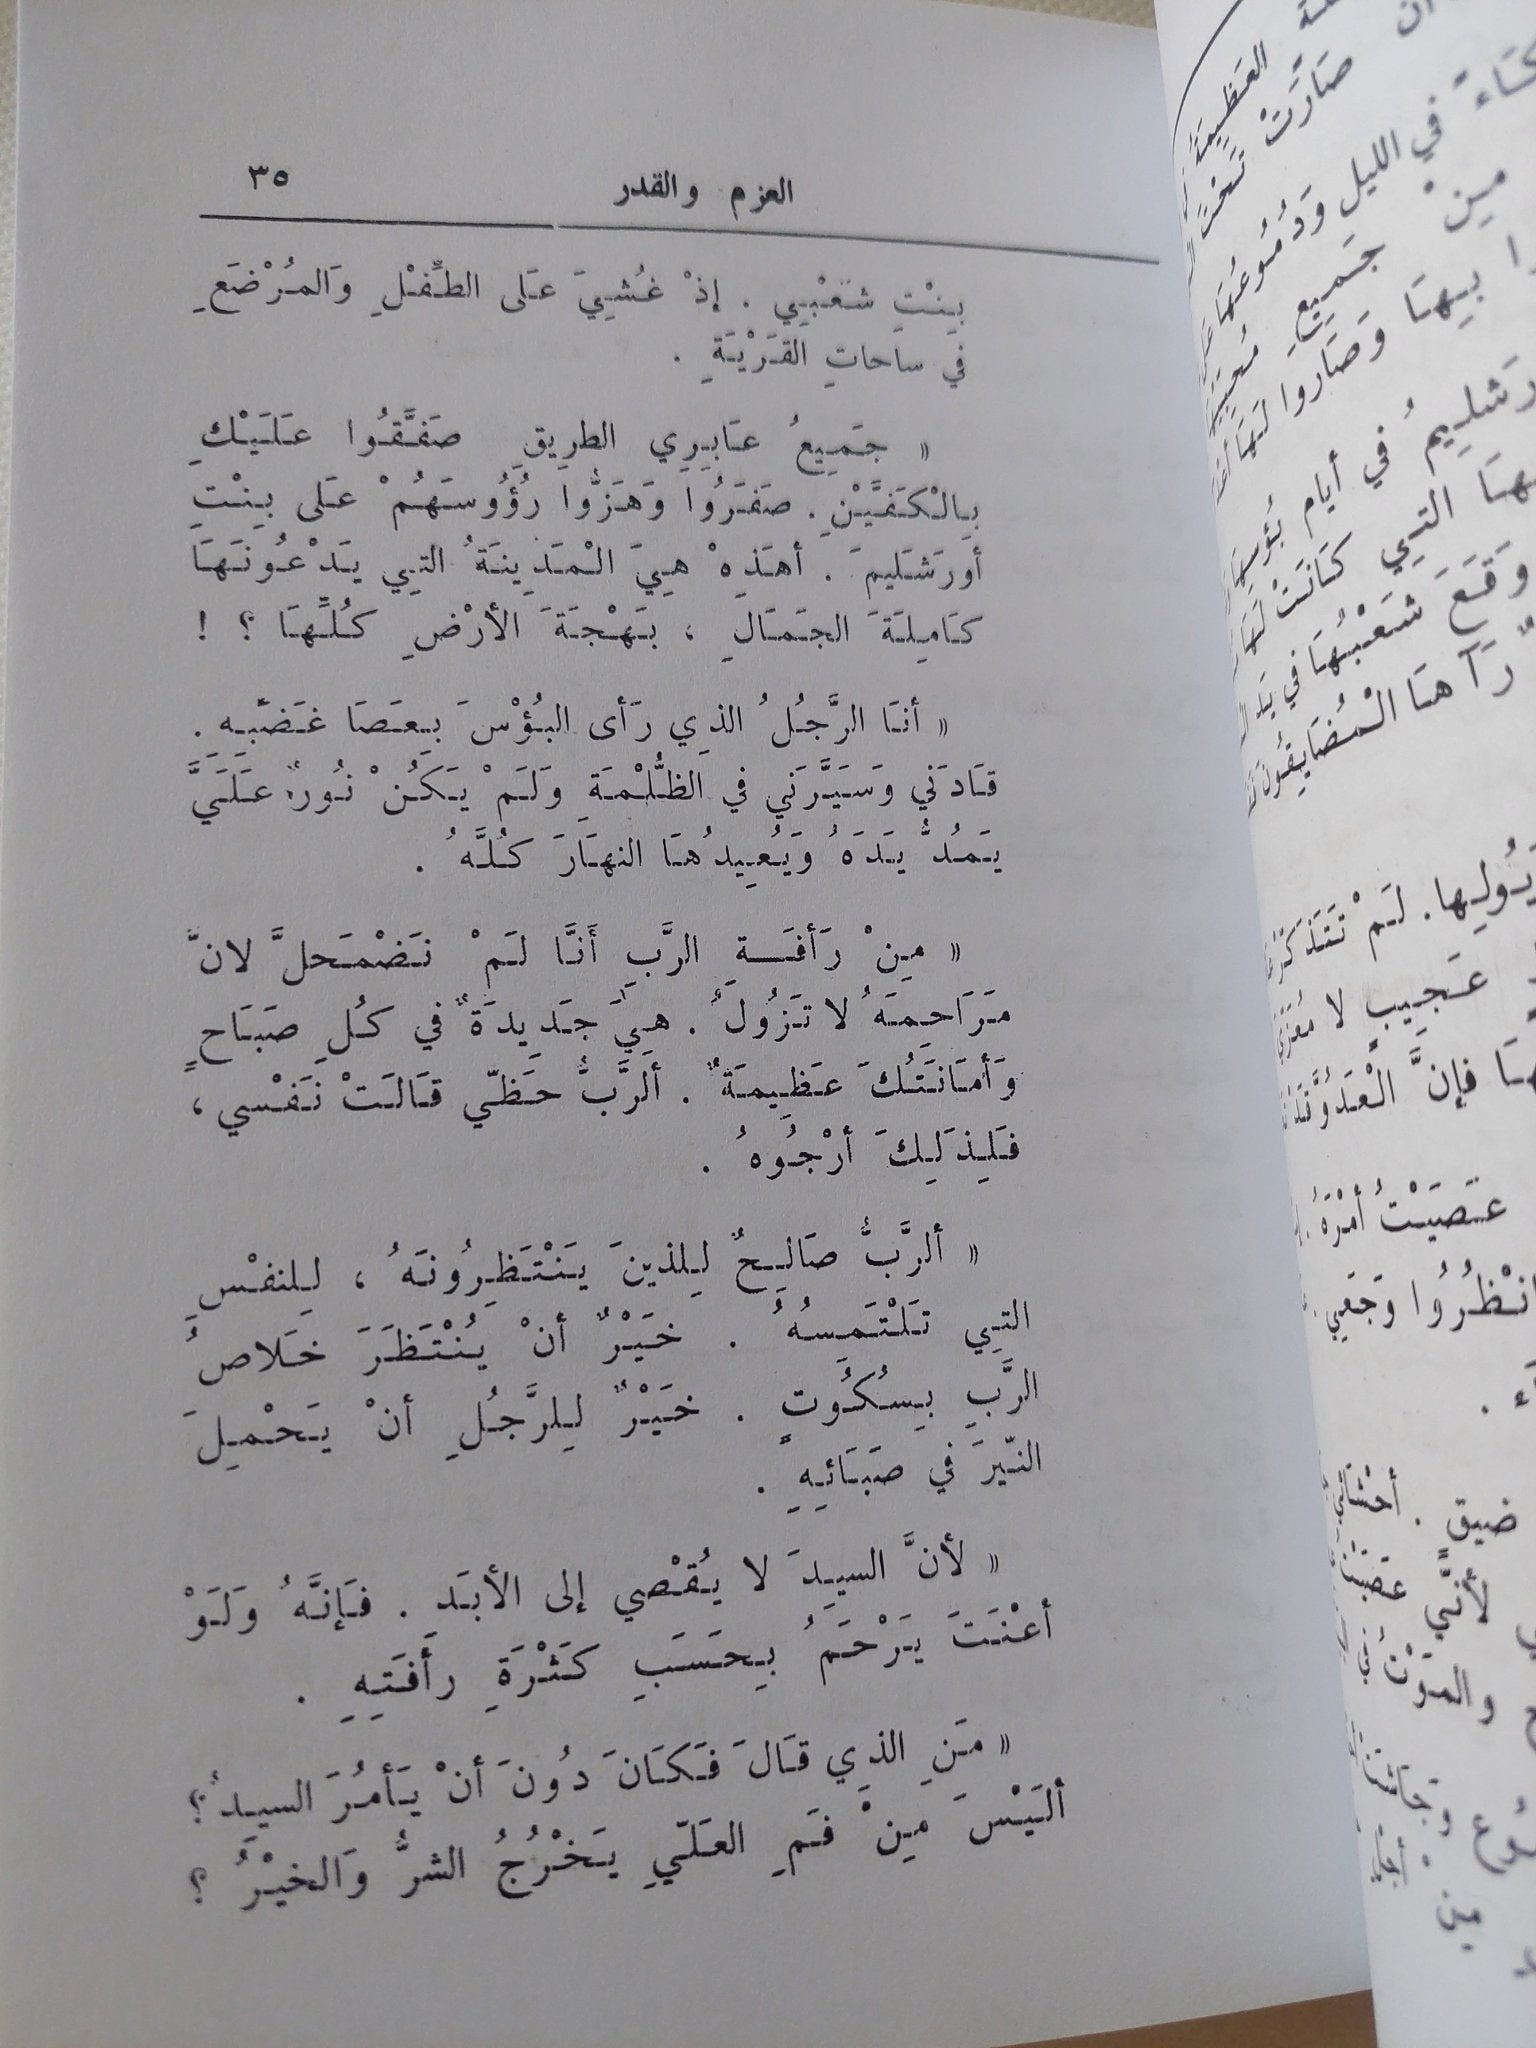 العزم والقدر ٣٥
بِنْتِ شَعْبِي . إذْ غُشِيَ عَلى الطِّفْلِ وَالمُرْضَعِ
في ساحاتِ القَرْيَةِ .
« جَمِيعُ عَابِرِي الطرِيقِ صَفَّقُوا عَلَيْكِ
بِالْكَفَّيْنِ . صَفَرُوا وَهَزُّوا رُؤُوسَهُمْ عَلى بِنْتِ
أورَشَلِيمَ . أهَذِهْ هِيَ الْمَدِينَةُ التِي يَدْعُونَهَا
كَامِلَةَ الجَمَالِ ، بَهْجَةَ الأرْضِ كُلِّهَا ؟ !
« أنَا الرَّجُلُ الذِي رَأى البُؤْسَ بِعَصَا غَضَبِه .
قَادَني وَسَيَّرَني في الظُّلْمَةِ وَلَمْ يَكُنْ نُورٌ عَلَيَّ
يَمُدُّ يَدَهُ وَيُعِيدُهَا النهَارَ كُلَّهُ .
« مِنْ رَأفَةِ الرَّبِ أَنَّا لَمْ نَضْمَحلَّ لانَّ
مَرَاحِمَهُ لا تَزُولُ . هِيَ جَدِيدَةٌ في كُلِ صَبَاحٍ
وَأمَانَتُكَ عَظِيمَةٌ . ألرَّبُّ حَظّي قَالَتْ نَفْسي ،
فَلِذَلِكَ أرْجُوهُ .
« ألرَّبُّ صَالِحٌ لِلذينَ يَنْتَظِرُونَهُ ، لِلنفْسِ
التِي تَلْتَمِسُهُ . خَيْرٌ أنْ يُنْتَظَرَ خَلاصُ
الرَّبِ بِسُكُوتٍ . خَيْرٌ لِلرَّجُلِ أنْ يَحْمِلَ
النّيرَ في صَبَائِهِ .
« لأنَّ السيدَ لا يُقْصي إلى الأبَدِ . فَإنَّهُ وَلَوْ
أعْنَتَ يَرْحَمُ بِحَسَبِ كَثْرَةِ رأفَتِهِ .
« مَنِ الذِي قَالَ فَكَانَ دُونَ أنْ يَأمُرَ السيدُ ؟
ألَيْسَ مِنْ فَمِ العَلّيِ يَخْرُجُ الشرُّ وَالخيْرُ ؟
العَظِيمَةُ
صَارَتْ تَحْتَ
في الليل وَدُمُوعُهَا
مِنْ جَمِيعِ
بِهَا وَصَاروا لَهَا
في أيام بُؤسِهَا
التِي كَانَتْ لَهَا
وَقَعَ شَعْبُهَا في يَدِ
رَآهَا الْمُضَايِقُونَ
لَمْ تَتَذَكَّرْ
عَجِيبٍ لا
فإنَّ الْعَدُوَّ
عَصَيْتُ أمْرَهُ .
انْظُرُوا وَجَعِي
ضيق . أحْشَائي
لأنّي
والمَوْتُ في
وَجَاشَتْ
مِنْ أجْل